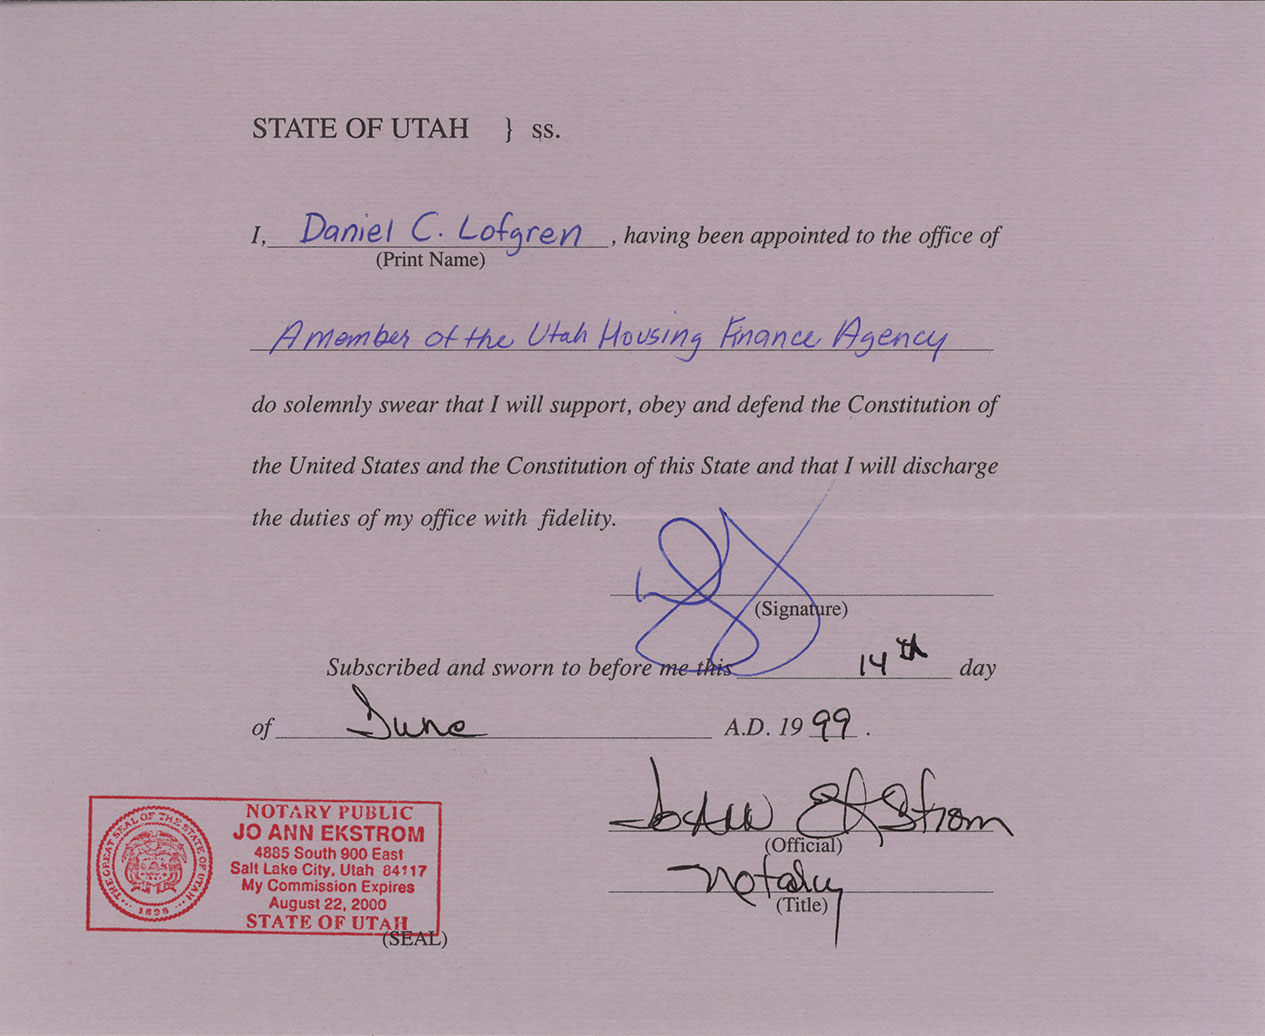 STATE OF UTAH } ss.
I, Daniel C. Lofgren, having been appointed to the office of
(Print Name)
A member of the Utah Housing Finance Agency
do solemnly swear that I will support, obey and defend the Constitution of
the United States and the Constitution of this State and that I will discharge
the duties of my office with fidelity.
(Signature)
Subscribed and sworn to before me this 14th day
of June A.D. 1999.
JoAnn Ekstrom
(Official)
Notary
(Title)
THE GREAT SEAL OF THE STATE OF UTAH
1896
NOTARY PUBLIC
JO ANN EKSTROM
4885 South 900 East
Salt Lake City, Utah 84117
My Commission Expires
August 22, 2000
STATE OF UTAH
(SEAL)